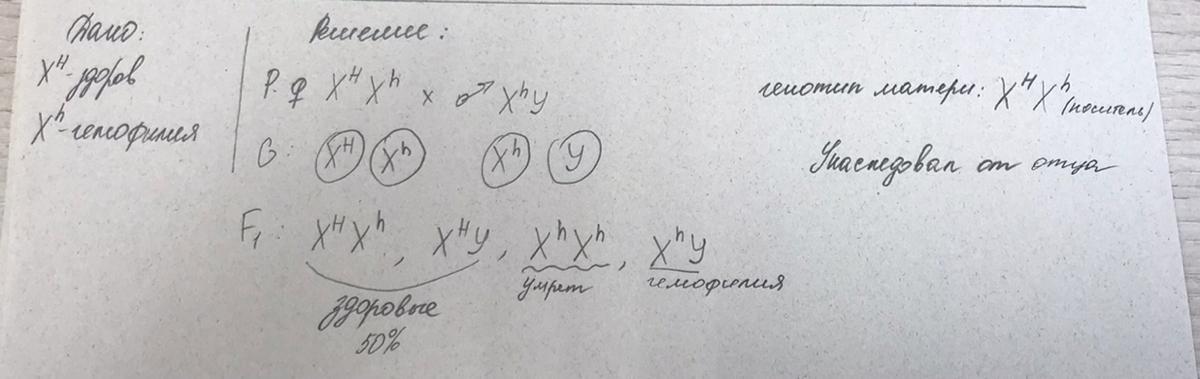 Дано:
X^H - здоров
X^h - гемофилия
Решение:
P: ♀ X^H X^h × ♂ X^h y
G: X^H X^h X^h y
F₁: X^H X^h, X^H y, X^h X^h, X^h y
здоровые
50%
умрет
гемофилия
генотип матери: X^H X^h (носитель)
Унаследовал от отца